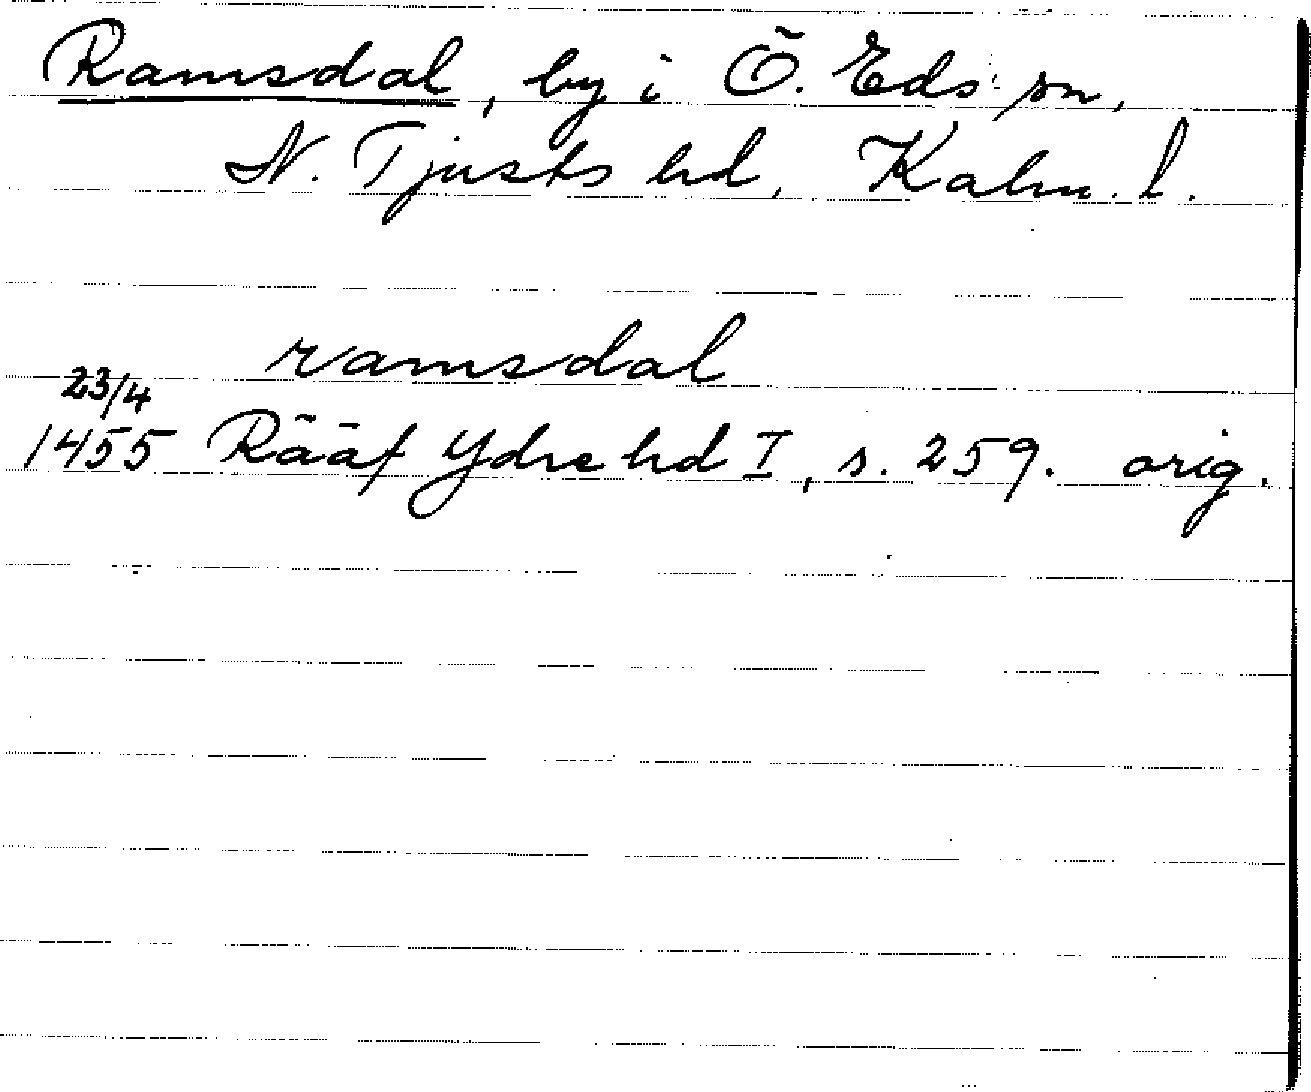 Ramsdal, by i Ö. Eds sn,
N. Tjusts hd, Kalm. l.
ramsdal
23/4
1455 Rääf Ydre hd I, s. 259. orig.